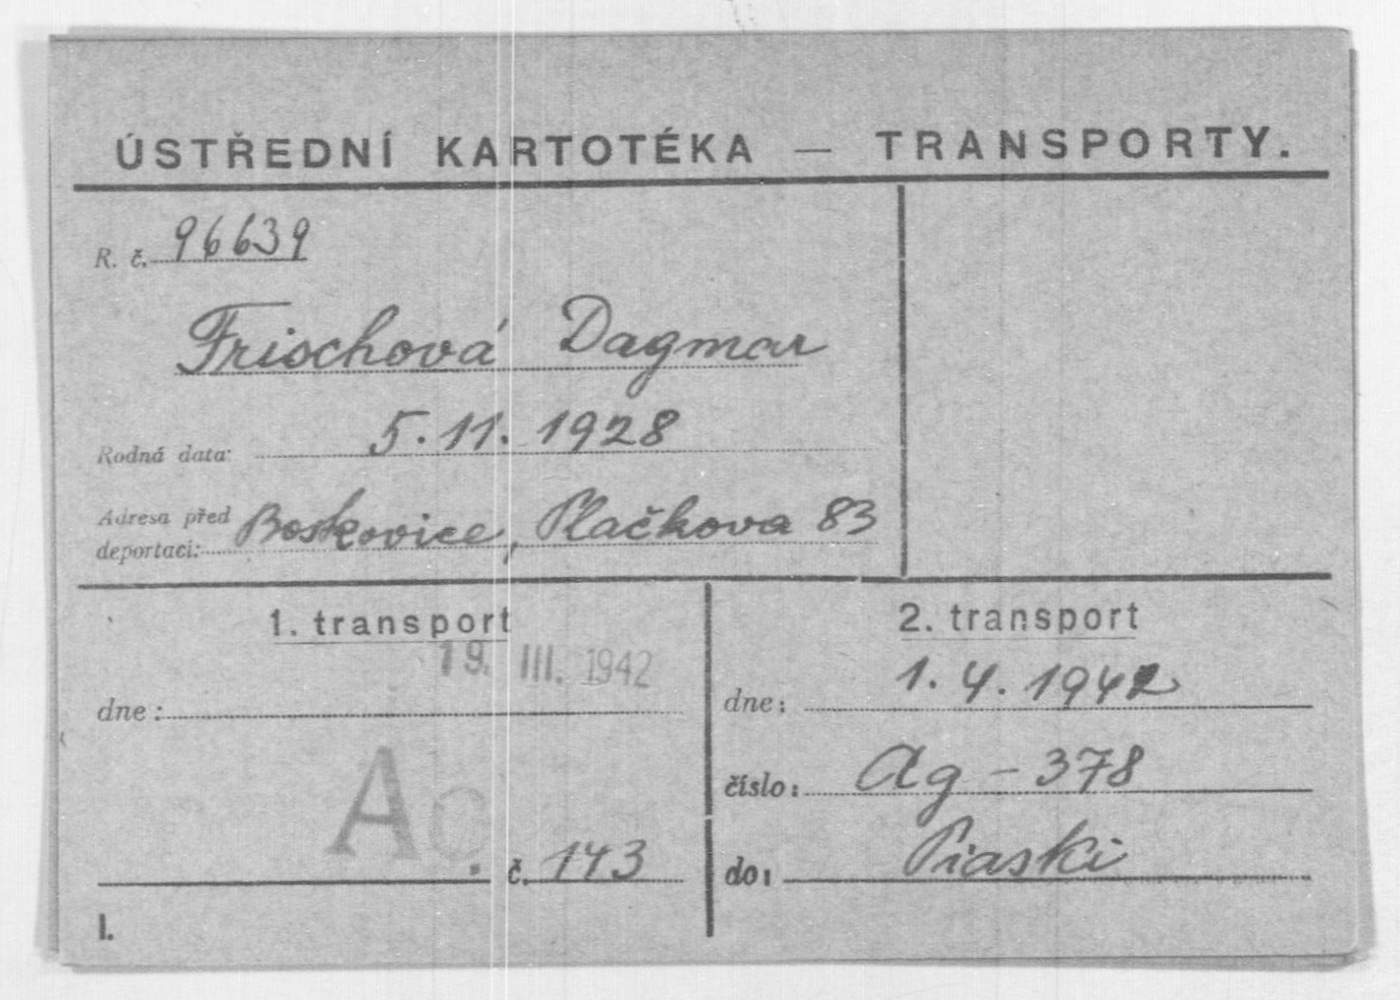 ÚSTŘEDNÍ KARTOTÉKA — TRANSPORTY.
R. č. 96639
Frischová Dagmar
Rodná data: 5. 11. 1928
Adresa před
deportací: Boskovice, Plačkova 83
1. transport
19. III. 1942
dne:
Ac
č. 143
2. transport
dne: 1. 4. 1942
číslo: Ag - 378
do: Piaski
I.